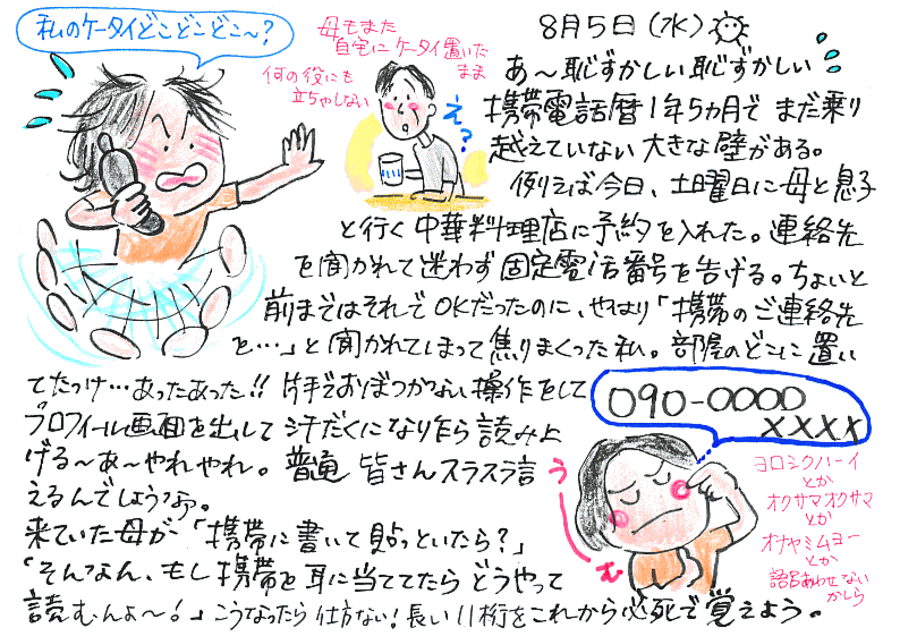 私のケータイどこどこどこ〜?
母もまた
自宅にケータイ置いた
まま
何の役にも
立ちゃしない
え?
8月5日(水)
あ〜恥ずかしい恥ずかしい
携帯電話暦1年5ヵ月で まだ乗り
越えていない大きな壁がある。
例えば今日、土曜日に母と息子
と行く中華料理店に予約を入れた。連絡先
を聞かれて迷わず固定電話番号を告げる。ちょいと
前まではそれでOKだったのに、やはり「携帯のご連絡先
を…」と聞かれてしまって焦りまくった私。部屋のどこに置い
てたっけ…あったあった!! 片手でおぼつかない操作をして
プロフィール画面を出して汗だくになり乍ら読み上
げる〜あ〜やれやれ。普通皆さんスラスラ言
えるんでしょうねぇ。
来ていた母が「携帯に書いて貼っといたら?」
「そんなん、もし携帯を耳に当ててたらどうやって
読むんよ〜!」こうなったら仕方ない!長い11桁をこれから必死で覚えよう。
090-0000
XXXX
う
む
ヨロシクハーイ
とか
オクサマオクサマ
とか
オナヤミムヨー
とか
語呂あわせない
かしら